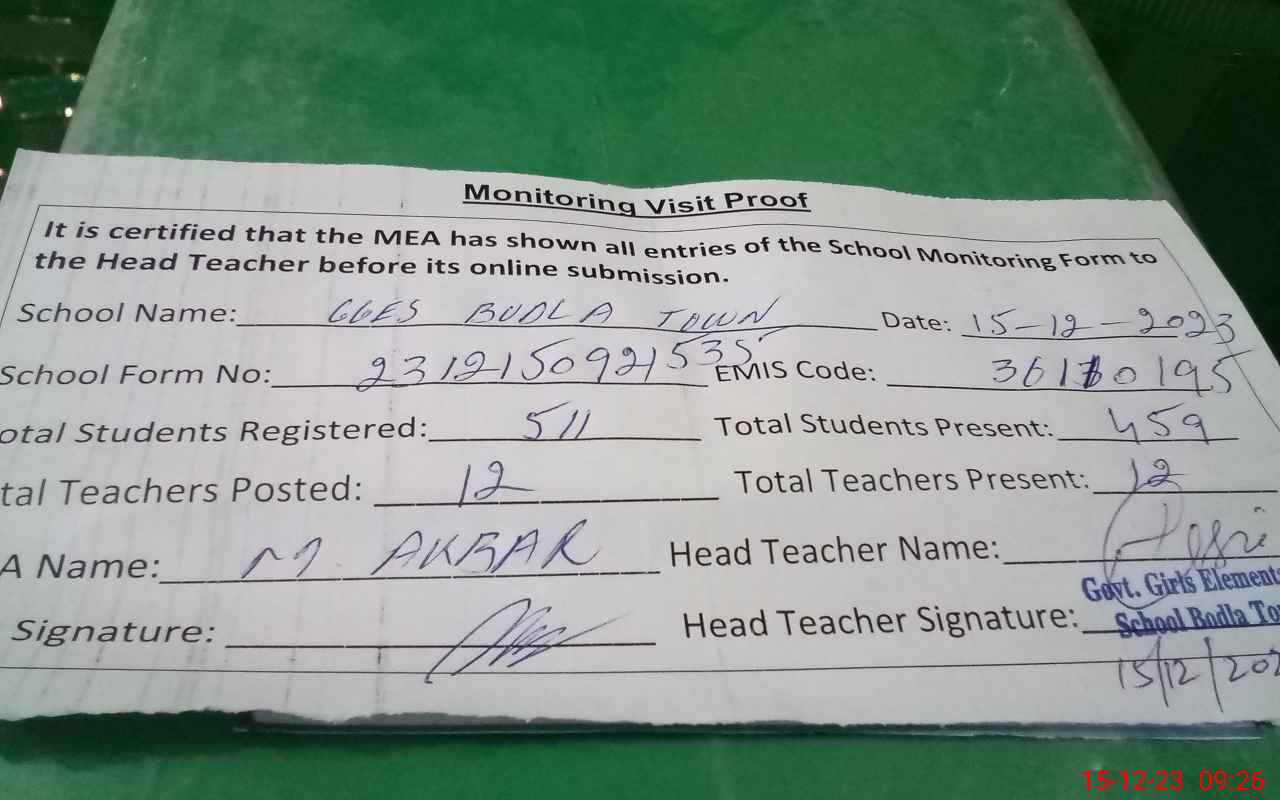 Monitoring Visit Proof
It is certified that the MEA has shown all entries of the School Monitoring Form to
the Head Teacher before its online submission.
School Name: GGES BODLA TOWN Date: 15-12-2023
School Form No: 2312150921535 EMIS Code: 36110195
otal Students Registered: 511 Total Students Present: 459
tal Teachers Posted: 12 Total Teachers Present: 12
A Name: M. AKBAR Head Teacher Name:
Signature: Head Teacher Signature:
Govt. Girls Element
School Bodla To
15/12/202
15-12-23 09:26